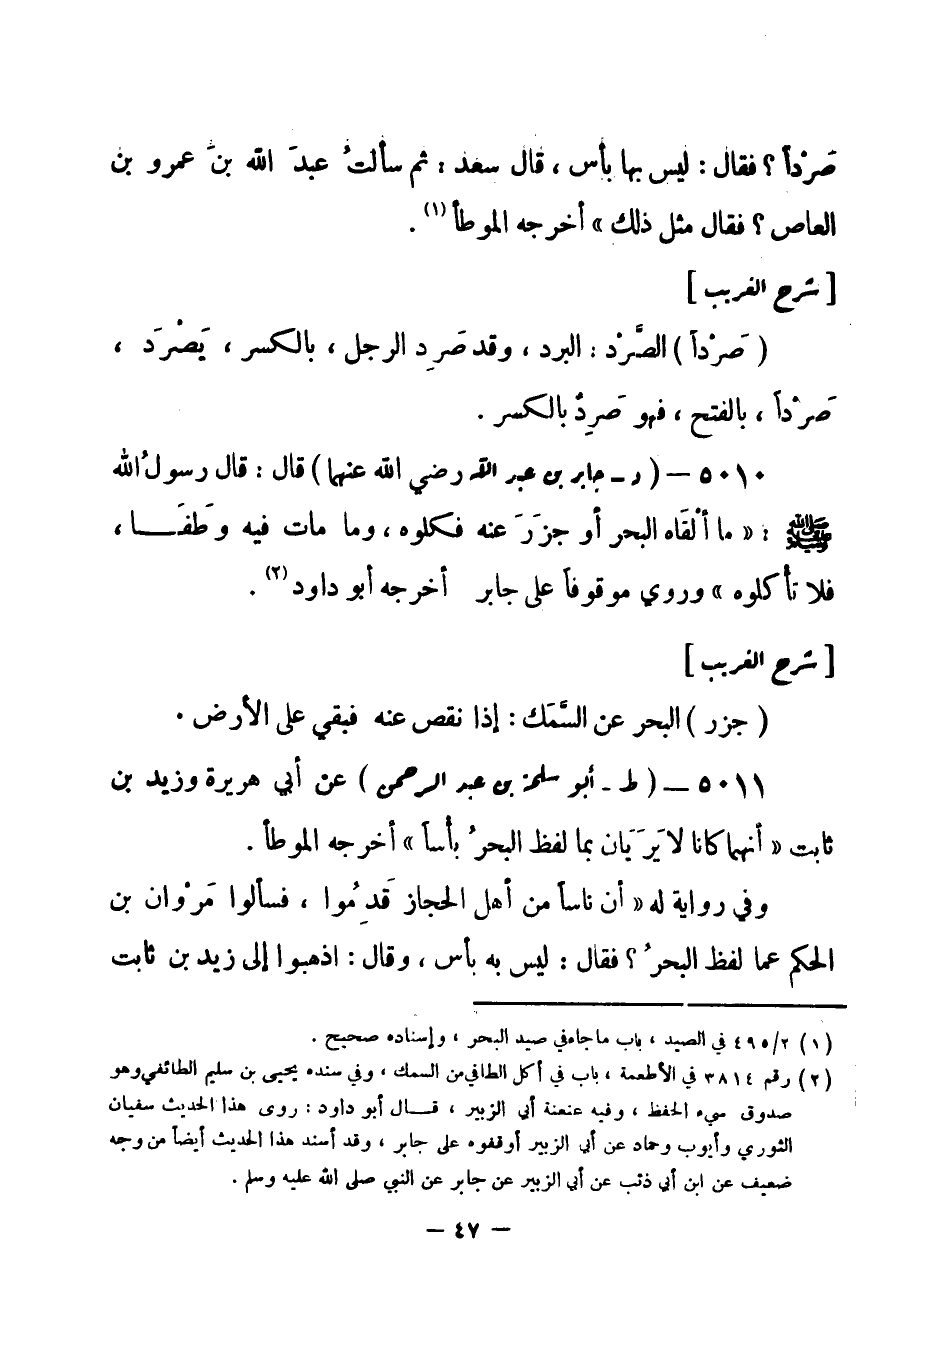 صَرْداً ؟ فقال : ليس بها بأس ، قال سعد : ثم سألتُ عبدَ الله بنَ عمرو بن
العاص ؟ فقال مثل ذلك » أخرجه الموطأ (١) .
[ شرح الغريب ]
( صَرْداً ) الصَّرْد : البرد ، وقد صَرِد الرجل ، بالكسر ، يَصْرَد ،
صَرْداً ، بالفتح ، فهو صَرِدٌ بالكسر .
٥٠١٠ – ( د – جابر بن عبد الله رضي الله عنهما ) قال : قال رسولُ الله
ﷺ : « ما ألْقَاه البحر أو جزَرَ عنه فكلوه ، وما مات فيه وطَفَـــا ،
فلا تأكلوه » وروي موقوفاً على جابر أخرجه أبو داود (٢) .
[ شرح الغريب ]
( جزر ) البحر عن السَّمَك : إذا نقص عنه فبقي على الأرض .
٥٠١١ – ( ط – أبو سلمة بن عبد الرحمن ) عن أبي هريرة وزيد بن
ثابت « أنهما كانا لا يَرَيَان بما لفظ البحرُ بأساً » أخرجه الموطأ .
وفي رواية له « أن ناساً من أهل الحجاز قَدِمُوا ، فسألوا مَرْوان بن
الحكم عما لفظ البحرُ ؟ فقال : ليس به بأس ، وقال : اذهبوا إلى زيد بن ثابت
(١) ٤٩٥/٢ في الصيد ، باب ما جاء في صيد البحر ، وإسناده صحيح .
(٢) رقم ٣٨١٤ في الأطعمة ، باب في أكل الطافي من السمك ، وفي سنده يحيى بن سليم الطائفي وهو
صدوق سيء الحفظ ، وفيه عنعنة أبي الزبير ، قـــال أبو داود : روى هذا الحديث سفيان
الثوري وأيوب وحماد عن أبي الزبير أوقفوه على جابر ، وقد أسند هذا الحديث أيضاً من وجه
ضعيف عن ابن أبي ذئب عن أبي الزبير عن جابر عن النبي صلى الله عليه وسلم .
– ٤٧ –